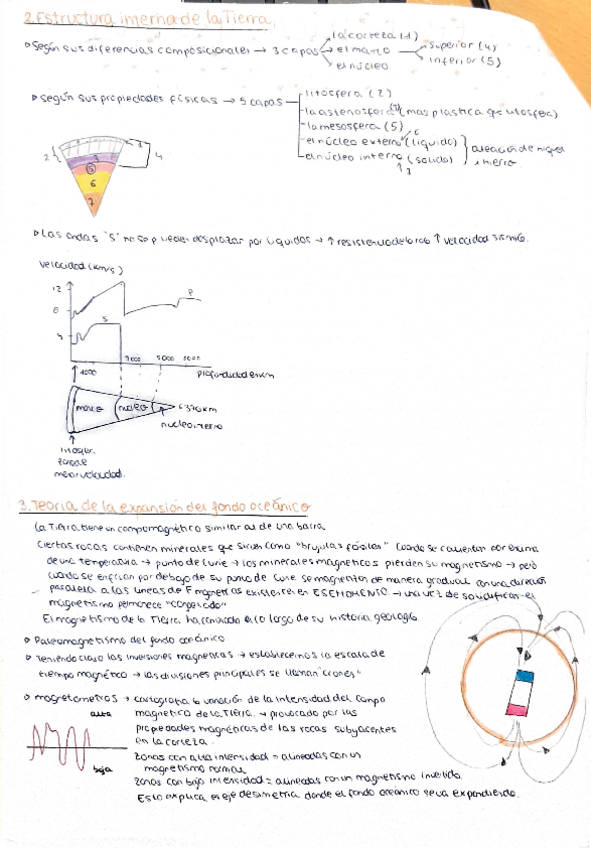 2. Estructura interna de la Tierra
Según sus diferencias composicionales → 3 capas
la corteza (1)
el manto
superior (4)
inferior (5)
el núcleo
Según sus propiedades físicas → 5 capas
litosfera (2)
la astenosfera (3) (más plastica que litosfera)
la mesosfera (5)
el núcleo externo (líquido)
el núcleo interno (solido)
6
7
aleación de niquel
hierro
1
2
3
4
5
6
7
Las ondas "S" no se pueden desplazar por líquidos → ↑ resistencia ↑ velocidad
velocidad (km/s)
12
8
4
S
P
5000
profundidad en km
manto
núcleo
6370km
núcleo interno
menor velocidad.
3. Teoría de la expansión del fondo oceánico
La Tierra tiene un campo magnético similar al de una barra
Ciertas rocas contienen minerales que sirven como "brujulas fósiles" Cuando se calientan por encima
de una temperatura → punto de Curie → los minerales magneticos pierden su magnetismo → pero
cuando se enfrian por debajo de su punto de Curie se magnetizan de manera gradual con una dirección
paralela a las lineas de F magnetica existentes en ESE MOMENTO. → una vez de solidifican el
magnetismo permanece "congelado"
El magnetismo de la Tierra ha cambiado a lo largo de su historia geologia.
Paleomagnetismo del fondo oceánico
Teniendo claro las inversiones magneticas → establecemos la escala de
tiempo magnético → las divisiones principales se llaman "crones"
magnetometros → cartografia la variación de la intensidad del campo
magnetico de la Tierra. → provocado por las
propiedades magnéticas de las rocas subyacentes
en la corteza.
alta
baja
zonas con alta intensidad = alineadas con un
magnetismo normal
zonas con baja intensidad = alineadas con un magnetismo invertido.
Esto explica el eje de simetria donde el fondo oceánico se va expandiendo.